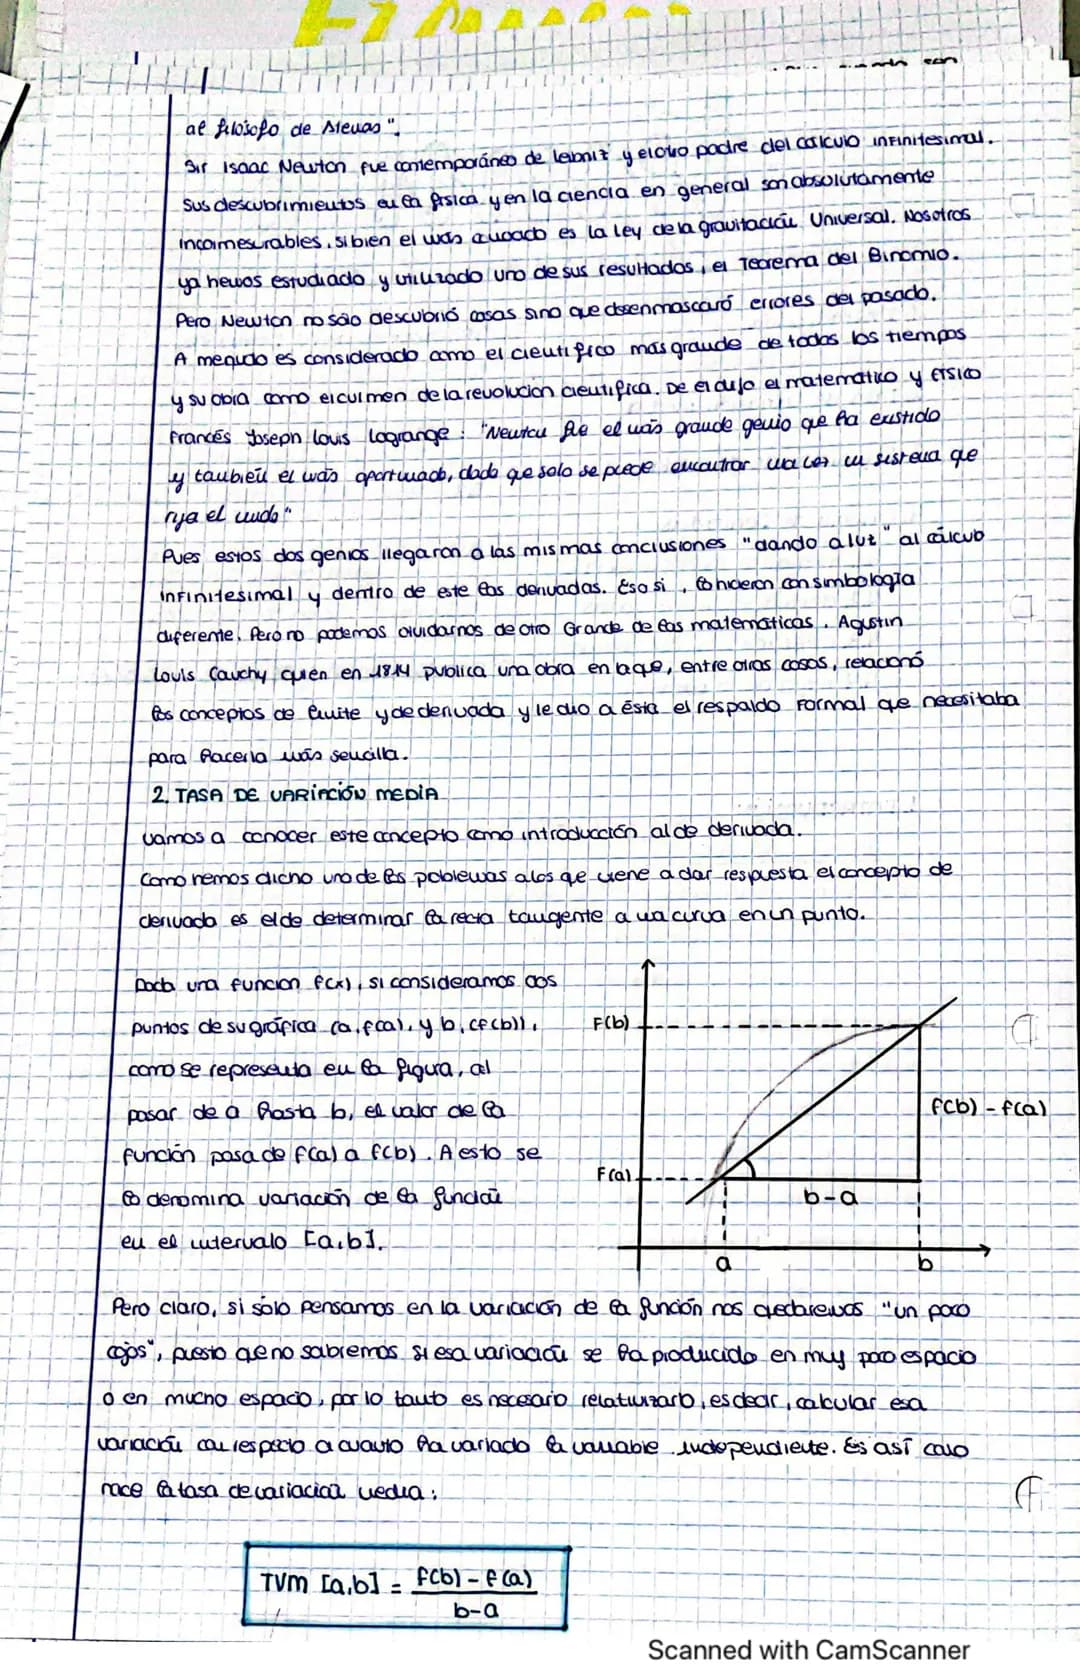 al filósofo de Atenas".
Sir Isaac Newton fue contemporáneo de Leibniz y el otro padre del cálculo infinitesimal.
Sus descubrimientos en la física y en la ciencia en general son absolutamente
incomesurables, si bien el más aupado es la ley de la gravitación Universal. Nosotros
ya hemos estudiado y utilizado uno de sus resultados, el Teorema del Binomio.
Pero Newton no sólo descubrió cosas sino que desenmascaró errores del pasado.
A menudo es considerado como el científico más grande de todos los tiempos
y su obra como el culmen de la revolución científica. De él dijo el matemático y físico
francés Joseph Louis Lagrange: "Newton fue el más grande genio que ha existido
y también el más afortunado, dado que solo se puede encontrar una vez un sistema que
rija el mundo"
Pues estos dos genios llegaron a las mismas conclusiones "dando a luz" al cálculo
infinitesimal y dentro de este las derivadas. Eso si, lo hicieron con simbología
diferente. Pero no podemos olvidarnos de otro Grande de las matemáticas. Agustin
Louis Cauchy quien en 1814 publica una obra en la que, entre otras cosas, relacionó
los conceptos de límite y de derivada y le dio a ésta el respaldo formal que necesitaba
para hacerla más sencilla.
2. TASA DE VARIACIÓN MEDIA
Vamos a conocer este concepto como introducción al de derivada.
Como hemos dicho uno de los problemas a los que viene a dar respuesta el concepto de
derivada es el de determinar la recta tangente a una curva en un punto.
Dada una función f(x), si consideramos dos
puntos de su gráfica (a, f(a), y b, (f(b)),
como se representa en la figura, al
pasar de a hasta b, el valor de la
función pasa de f(a) a f(b). A esto se
lo denomina variación de la función
en el intervalo [a,b].
F(b)
f(b) - f(a)
F(a)
b-a
a
b
Pero claro, si sólo pensamos en la variación de la función nos quedaremos "un poco
cojos", puesto que no sabremos si esa variación se ha producido en muy poco espacio
o en mucho espacio, por lo tanto es necesario relativizarlo, es decir, calcular esa
variación con respecto a cuanto ha variado la variable independiente. Es así como
nace la tasa de variación media:
TVm [a,b] = f(b) - f(a) / b-a
Scanned with CamScanner